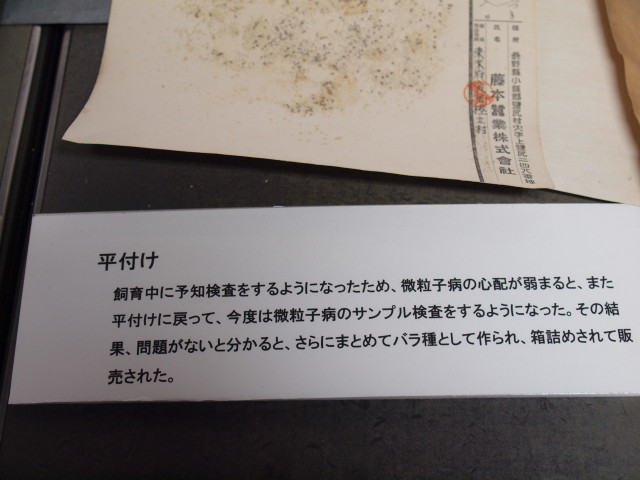 住所 長野縣小縣郡鹽尻村大字上鹽尻二四八番地
氏名 藤本蠶業株式會社
平付け
飼育中に予知検査をするようになったため、微粒子病の心配が弱まると、また
平付けに戻って、今度は微粒子病のサンプル検査をするようになった。その結
果、問題がないと分かると、さらにまとめてバラ種として作られ、箱詰めされて販
売された。